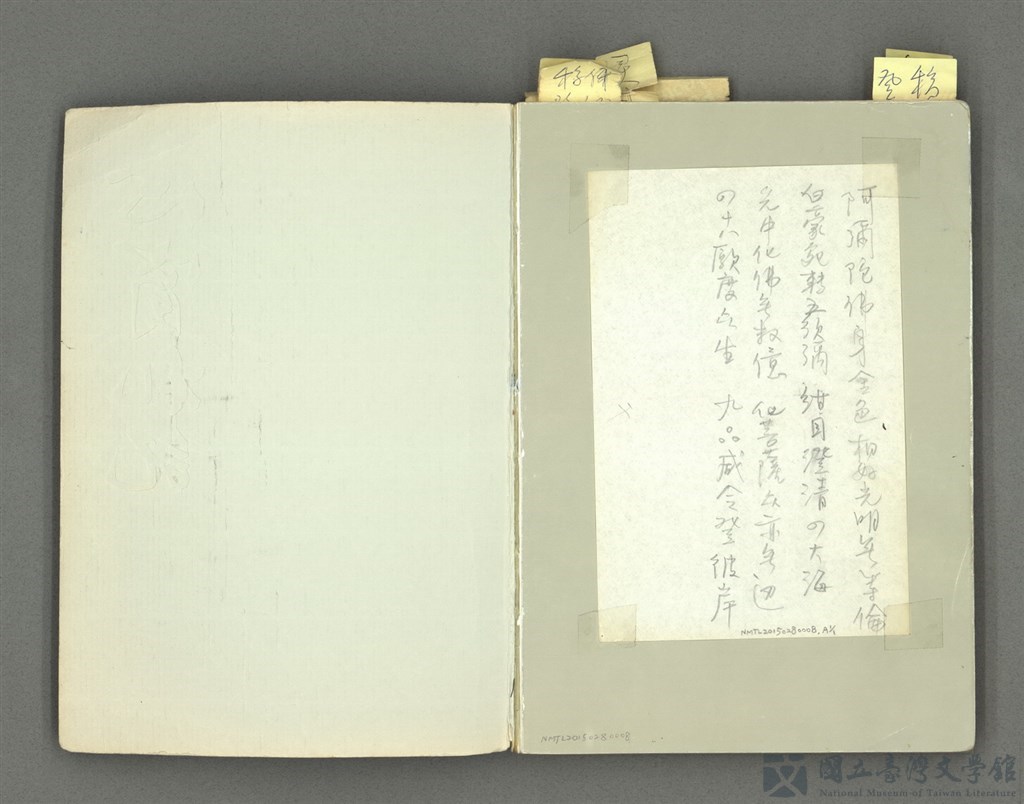 阿彌陀佛身金色 相好光明無等倫
白毫宛轉五須彌 紺目澄清四大海
光中化佛無数億 化菩薩众亦無边
四十八願度众生 九品咸令登彼岸
NMTL20150280008, A1/1
NMTL20150280008
國立臺灣文學館
National Museum of Taiwan Literature